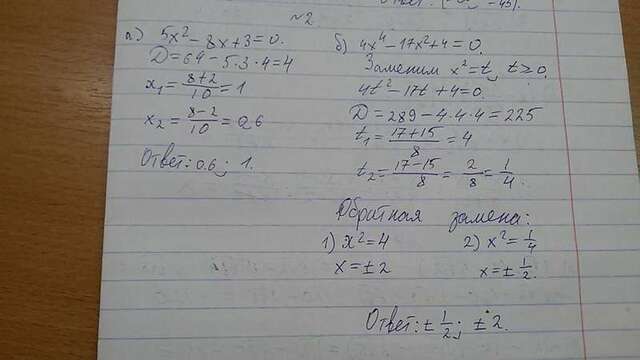 Ответ: -45).
№2.
а) 5x² - 8x + 3 = 0.
D = 64 - 5·3·4 = 4
x₁ = (8+2)/10 = 1
x₂ = (8-2)/10 = 0.6
Ответ: 0.6; 1.
б) 4x⁴ - 17x² + 4 = 0.
Заменим x² = t, t ≥ 0.
4t² - 17t + 4 = 0.
D = 289 - 4·4·4 = 225
t₁ = (17+15)/8 = 4
t₂ = (17-15)/8 = 2/8 = 1/4.
Обратная замена:
1) x² = 4 2) x² = 1/4
x = ±2 x = ± 1/2.
Ответ: ± 1/2; ± 2.